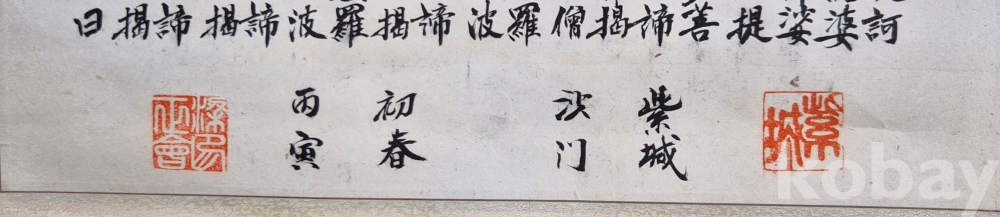 曰揭諦揭諦波羅揭諦波羅僧揭諦菩提娑婆訶
丙寅
初春
沙门
紫城
紫城
kobay